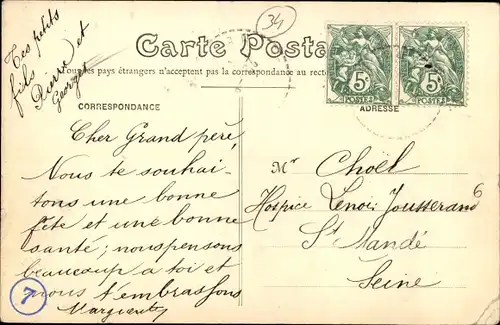 Tes petits
fils
Pierre et
Georges
34
Carte Posta
Tous pays étrangers n'acceptent pas la correspondance au recto
5c
POSTES
5c
POSTES
CORRESPONDANCE
ADRESSE
Cher Grand père,
Nous te souhai-
tons une bonne
fête et une bonne
santé; nous pensons
beaucoup a toi et
nous t'embrassons
Marguerite
7
Mr Choël
Hospice Lenoir Jousserand
6
St Mandé
Seine